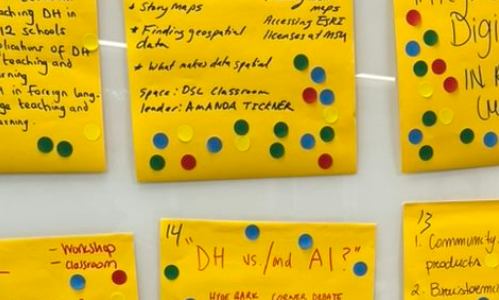 aching DH in
12 schools
plications of DH
teaching and
rning
in Foreign lang-
ge teaching and
arning.
* Story maps
* Finding geospatial
data
* What makes data spatial
maps
Accessing ESRI
licenses at MSU
Space: DSC Classroom
leader: AMANDA TICKNER
Digi
IN
- Workshop
- Classroom
14
"DH vs./and AI?"
HYDE PARK CORNER DEBATE
13
1. Community
products
2. Brainstormi